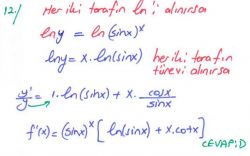 12./ Her iki tarafın ln'i alınırsa
lny = ln(sinx)^x
lny = x.ln(sinx) her iki tarafın
türevi alınırsa
y'/y = 1.ln(sinx) + x. cosx/sinx
f'(x) = (sinx)^x [ln(sinx) + x.cotx]
CEVAP: D